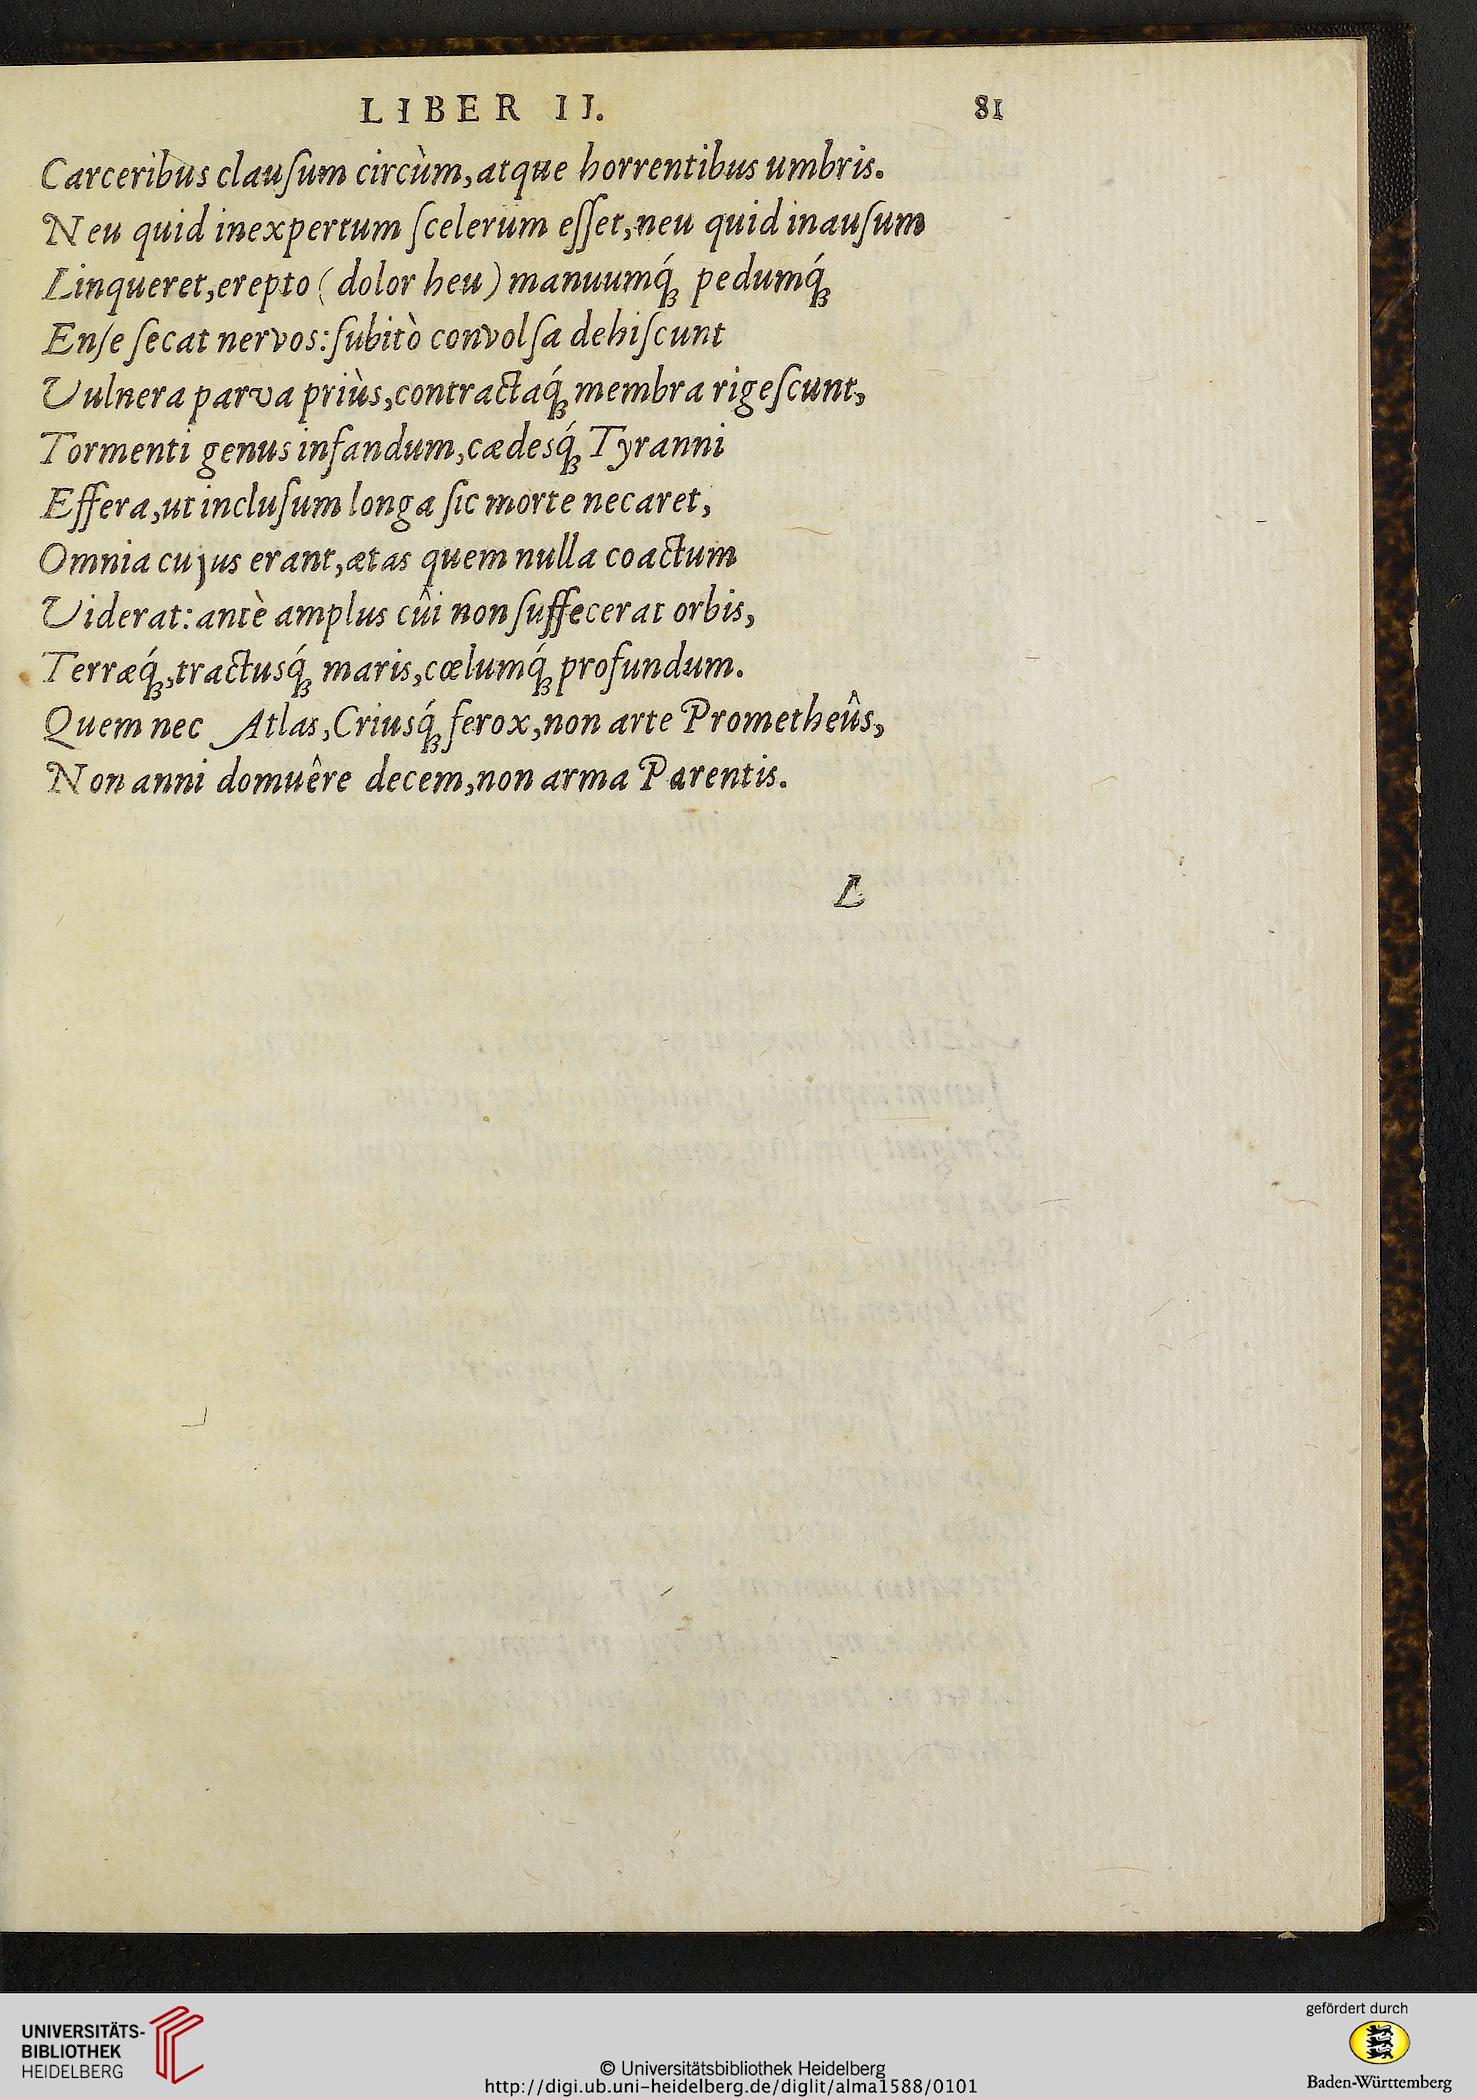 LIBER II. 81
Carceribus clauſum circùm, atque horrentibus umbris.
Neu quid inexpertum ſcelerum eſſet, neu quid inauſum
Linqueret, erepto (dolor heu) manuumq́ꝫ pedumq́ꝫ
Enſe ſecat nervos: ſubitò convolſa dehiſcunt
Vulnera parva priùs, contractaq́ꝫ membra rigeſcunt,
Tormenti genus infandum, cædesq́ꝫ Tyranni
Effera, ut incluſum longa ſic morte necaret,
Omnia cujus erant, ætas quem nulla coactum
Viderat: antè amplus cûi non ſuffecerat orbis,
Terræq́ꝫ, tractusq́ꝫ maris, cœlumq́ꝫ profundum.
Quem nec Atlas, Criusq́ꝫ ferox, non arte Prometheûs,
Non anni domuêre decem, non arma Parentis.
L
UNIVERSITÄTS-
BIBLIOTHEK
HEIDELBERG
© Universitätsbibliothek Heidelberg
http://digi.ub.uni-heidelberg.de/diglit/alma1588/0101
gefördert durch
Baden-Württemberg